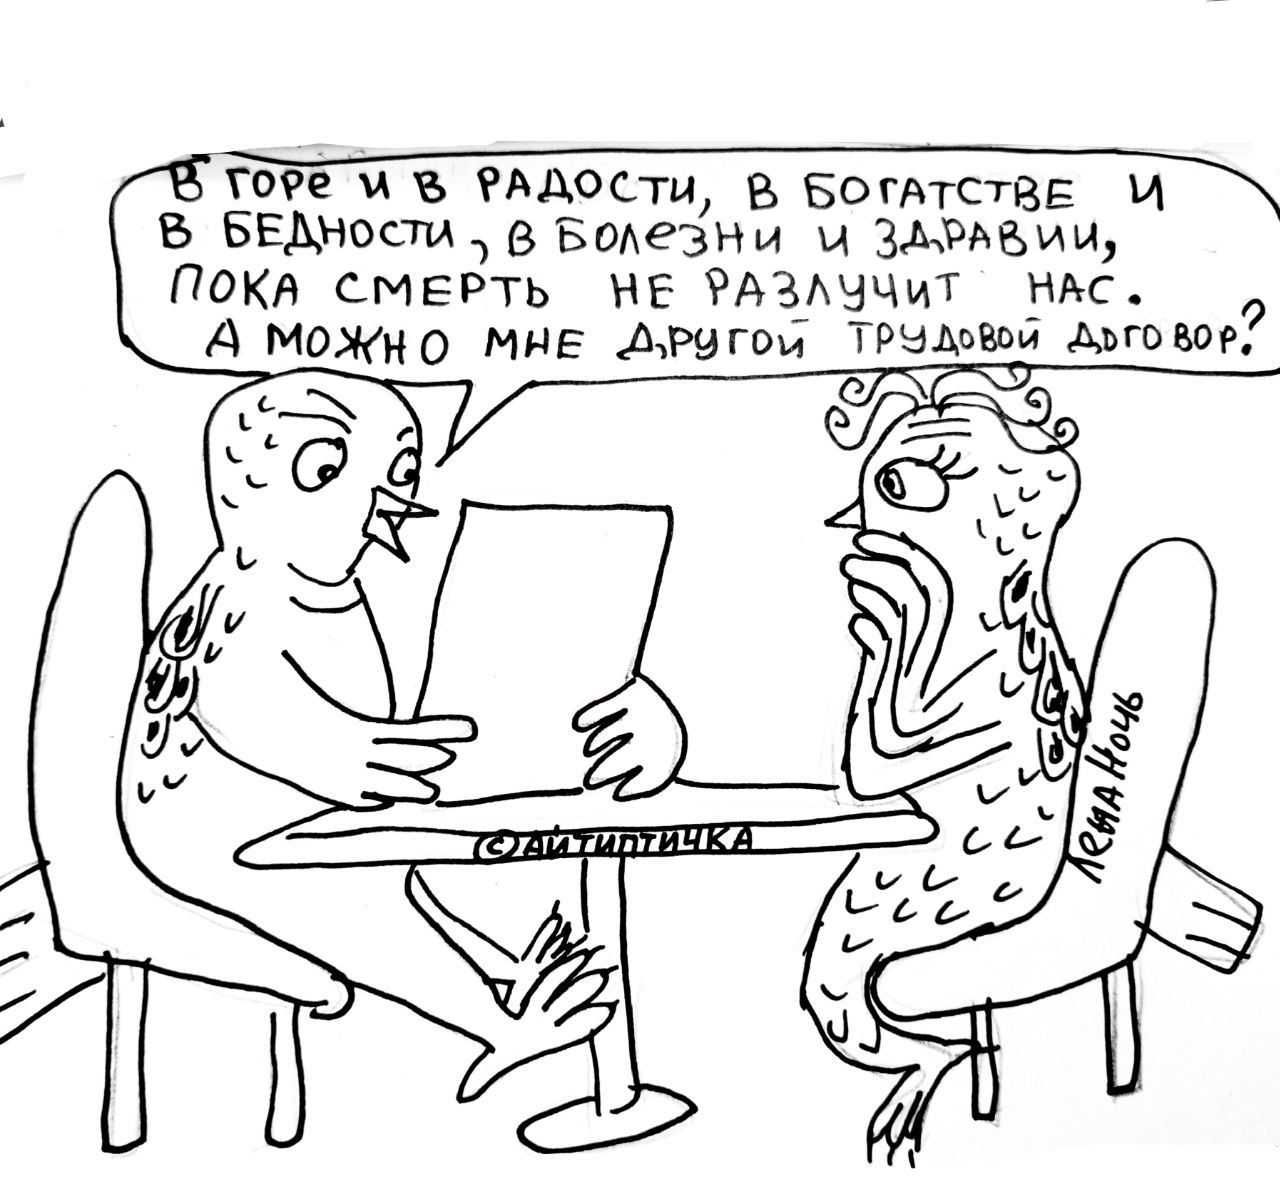 В горе и в РАДОСТИ, в БОГАТСТВЕ и
в БЕДНОСТИ, в Болезни и ЗДРАВИИ,
ПОКА СМЕРТЬ НЕ РАЗЛУЧИТ НАС.
А МОЖНО МНЕ ДРУГОЙ ТРУДОВОЙ ДОГОВОР?
©АЙТИПТИЧКА
ЛЕНА НОЧЬ